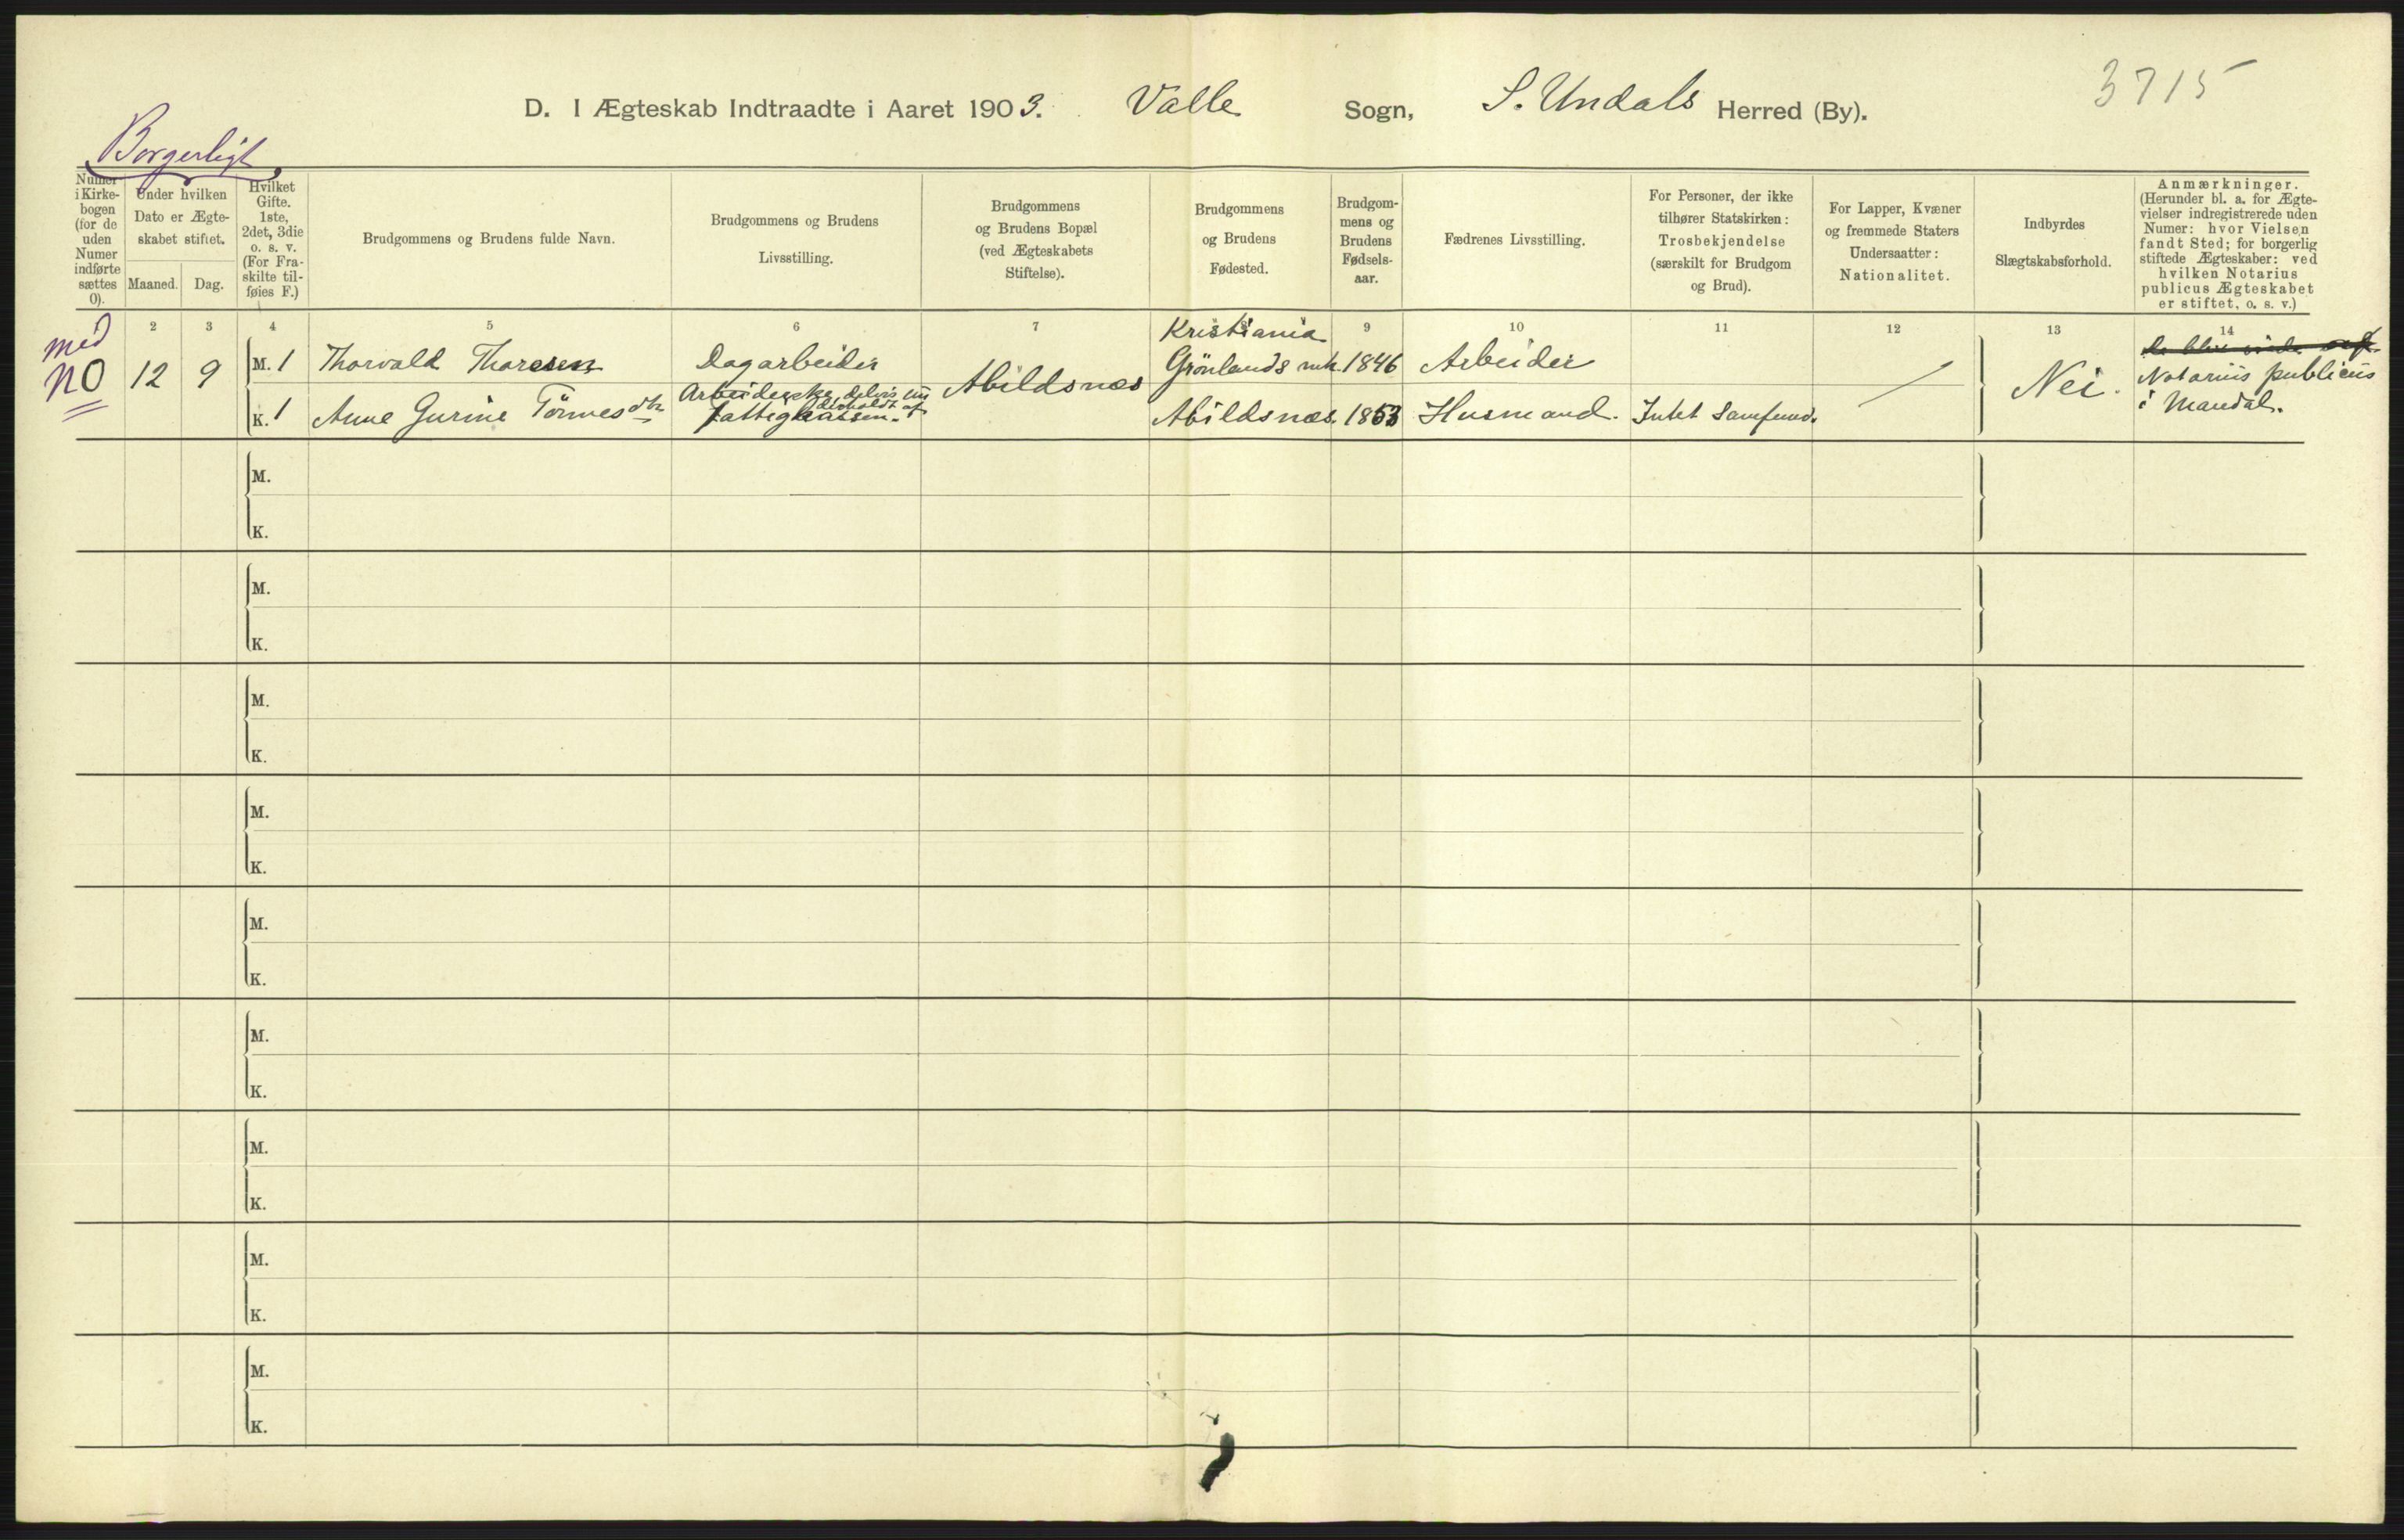 3715
D. I Ægteskab Indtraadte i Aaret 1903. Valle Sogn, S. Undals Herred (By).
Borgerligt
Numer i Kirke-bogen (for de uden Numer indførte sættes 0).
Under hvilken Dato er Ægte-skabet stiftet.
Maaned. Dag.
Hvilket Gifte. 1ste, 2det, 3die o. s. v. (For Fra-skilte til-føies F.)
Brudgommens og Brudens fulde Navn.
Brudgommens og Brudens Livsstilling.
Brudgommens og Brudens Bopæl (ved Ægteskabets Stiftelse).
Brudgommens og Brudens Fødested.
Brudgom-mens og Brudens Fødsels-aar.
Fædrenes Livsstilling.
For Personer, der ikke tilhører Statskirken: Trosbekjendelse (særskilt for Brudgom og Brud).
For Lapper, Kvæner og fremmede Staters Undersaatter: Nationalitet.
Indbyrdes Slægtskabsforhold.
Anmærkninger. (Herunder bl. a. for Ægte-vielser indregistrerede uden Numer: hvor Vielsen fandt Sted; for borgerlig stiftede Ægteskaber: ved hvilken Notarius publicus Ægteskabet er stiftet, o. s. v.)
2 3 4 5 6 7 9 10 11 12 13 14
med
no 12 9
M. 1 Thorvald Thoresen Dagarbeider Abildsnæs Kristiania Grönlands mk. 1846 Arbeider
K. 1 Anne Gurine Tönnesdtr Arbeiderske, delvis un derholdt af Fattigkassen. Abildsnæs. 1853 Husmand. Intet Samfund.
Nei.
Notarius publicus
i Mandal.
M.
K.
M.
K.
M.
K.
M.
K.
M.
K.
M.
K.
M.
K.
M.
K.
M.
K.